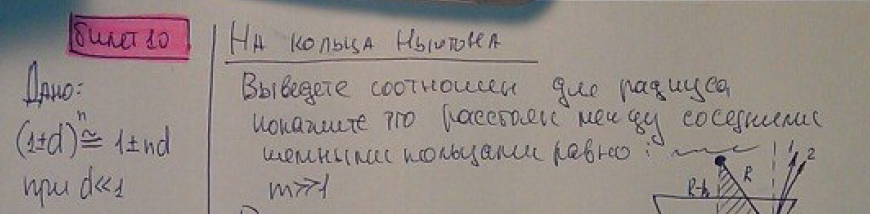 билет 10
Дано:
(1±d)ⁿ ≅ 1±nd
при d<<1
На кольца Ньютона
Выведете соотношен для радиуса
покажите что расстоян между соседними
темными кольцами равно:
m>>1
R-h
R
1
2